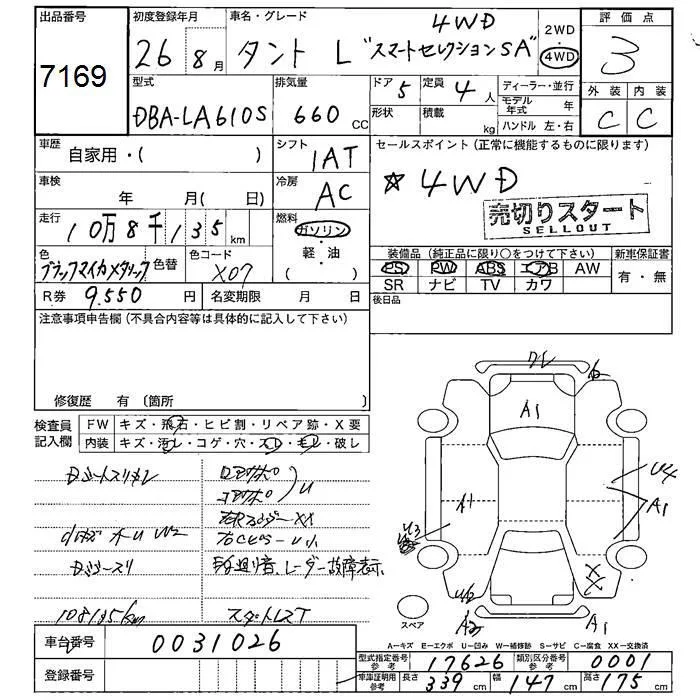 出品番号
7169
初度登録年月
26 8月
車名・グレード
4WD
タント L "スマートセレクションSA"
2WD
4WD
評価点
3
外装 内装
C C
型式
DBA-LA610S
排気量
660 CC
ドア 5
形状
定員 4人
積載 kg
ディーラー・並行
モデル年式 年
ハンドル 左・右
車歴
自家用・( )
シフト
1AT
車検
年 月( 日)
冷房
AC
走行
10万8千135km
燃料
ガソリン
軽・油
( )
色
ブラックマイカメタリック
色替
色コード
X07
R券 9.550円
名変期限 月 日
セールスポイント(正常に機能するものに限ります)
☆4WD
売切りスタート
SELLOUT
装備品(純正品に限り○をつけて下さい)
新車保証書
PS PW ABS エアB AW
SR ナビ TV カワ
有・無
後日品
注意事項申告欄(不具合内容等は具体的に記入して下さい)
修復歴 有〔箇所 〕
検査員記入欄
FW キズ・飛石・ヒビ割・リペア跡・X要
内装 キズ・汚レ・コゲ・穴・スレ・モレ・破し
XX
レーダー故障表示
108135km
スタットレスT
車台番号
0031026
登録番号
A1
U4
A1
XX
A2
スペア
A=キズ E=エクボ U=凹み W=補修跡 S=サビ C=腐食 XX=交換済
型式指定番号 参考 17626
類別区分番号 参考 0001
車庫証明用 参考 長さ 339 cm 幅 147 cm 高さ 175 cm